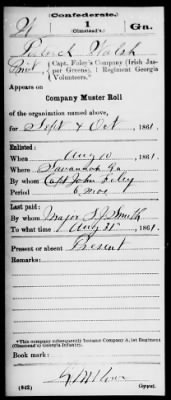 Confederate.
W 1 Ga.
(Olmstead's.)
Patrick Walsh
Pvt., Capt. Foley's Company (Irish Jas-
per Greens), 1 Regiment Georgia
Volunteers.*
Appears on
Company Muster Roll
of the organization named above,
for Sept & Oct, 1861.
Enlisted:
When Aug 10, 1861.
Where Savannah Ga
By whom Capt John Foley
Period 6 mos
Last paid:
By whom Major L J Smith
To what time Aug 31, 1861.
Present or absent Present
Remarks:
*This company subsequently became Company A, 1st Regiment
(Olmstead's) Georgia Infantry.
Book mark:
(642) Copyist.